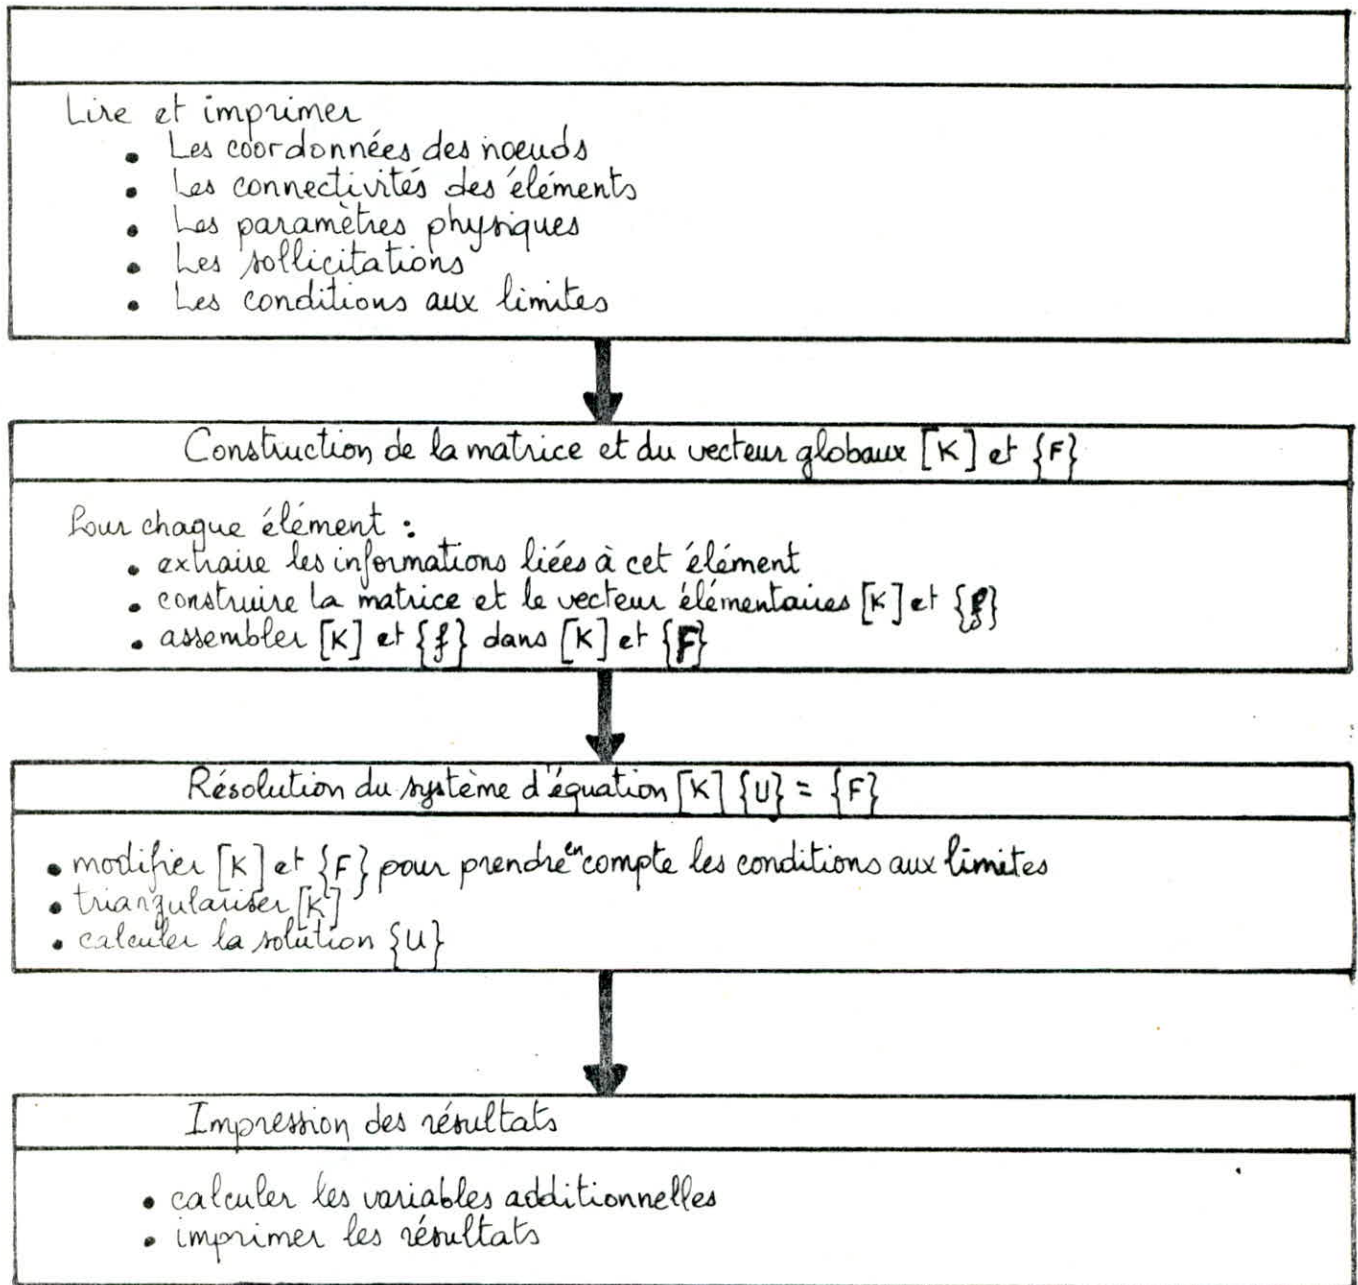 Lire et imprimer
• Les coordonnées des noeuds
• Les connectivités des éléments
• Les paramètres physiques
• Les sollicitations
• Les conditions aux limites
Construction de la matrice et du vecteur globaux [K] et {F}
Pour chaque élément :
• extraire les informations liées à cet élément
• construire la matrice et le vecteur élémentaires [K] et {f}
• assembler [K] et {f} dans [K] et {F}
Résolution du système d'équation [K] {U} = {F}
• modifier [K] et {F} pour prendre en compte les conditions aux limites
• triangulariser [K]
• calculer la solution {U}
Impression des résultats
• calculer les variables additionnelles
• imprimer les résultats